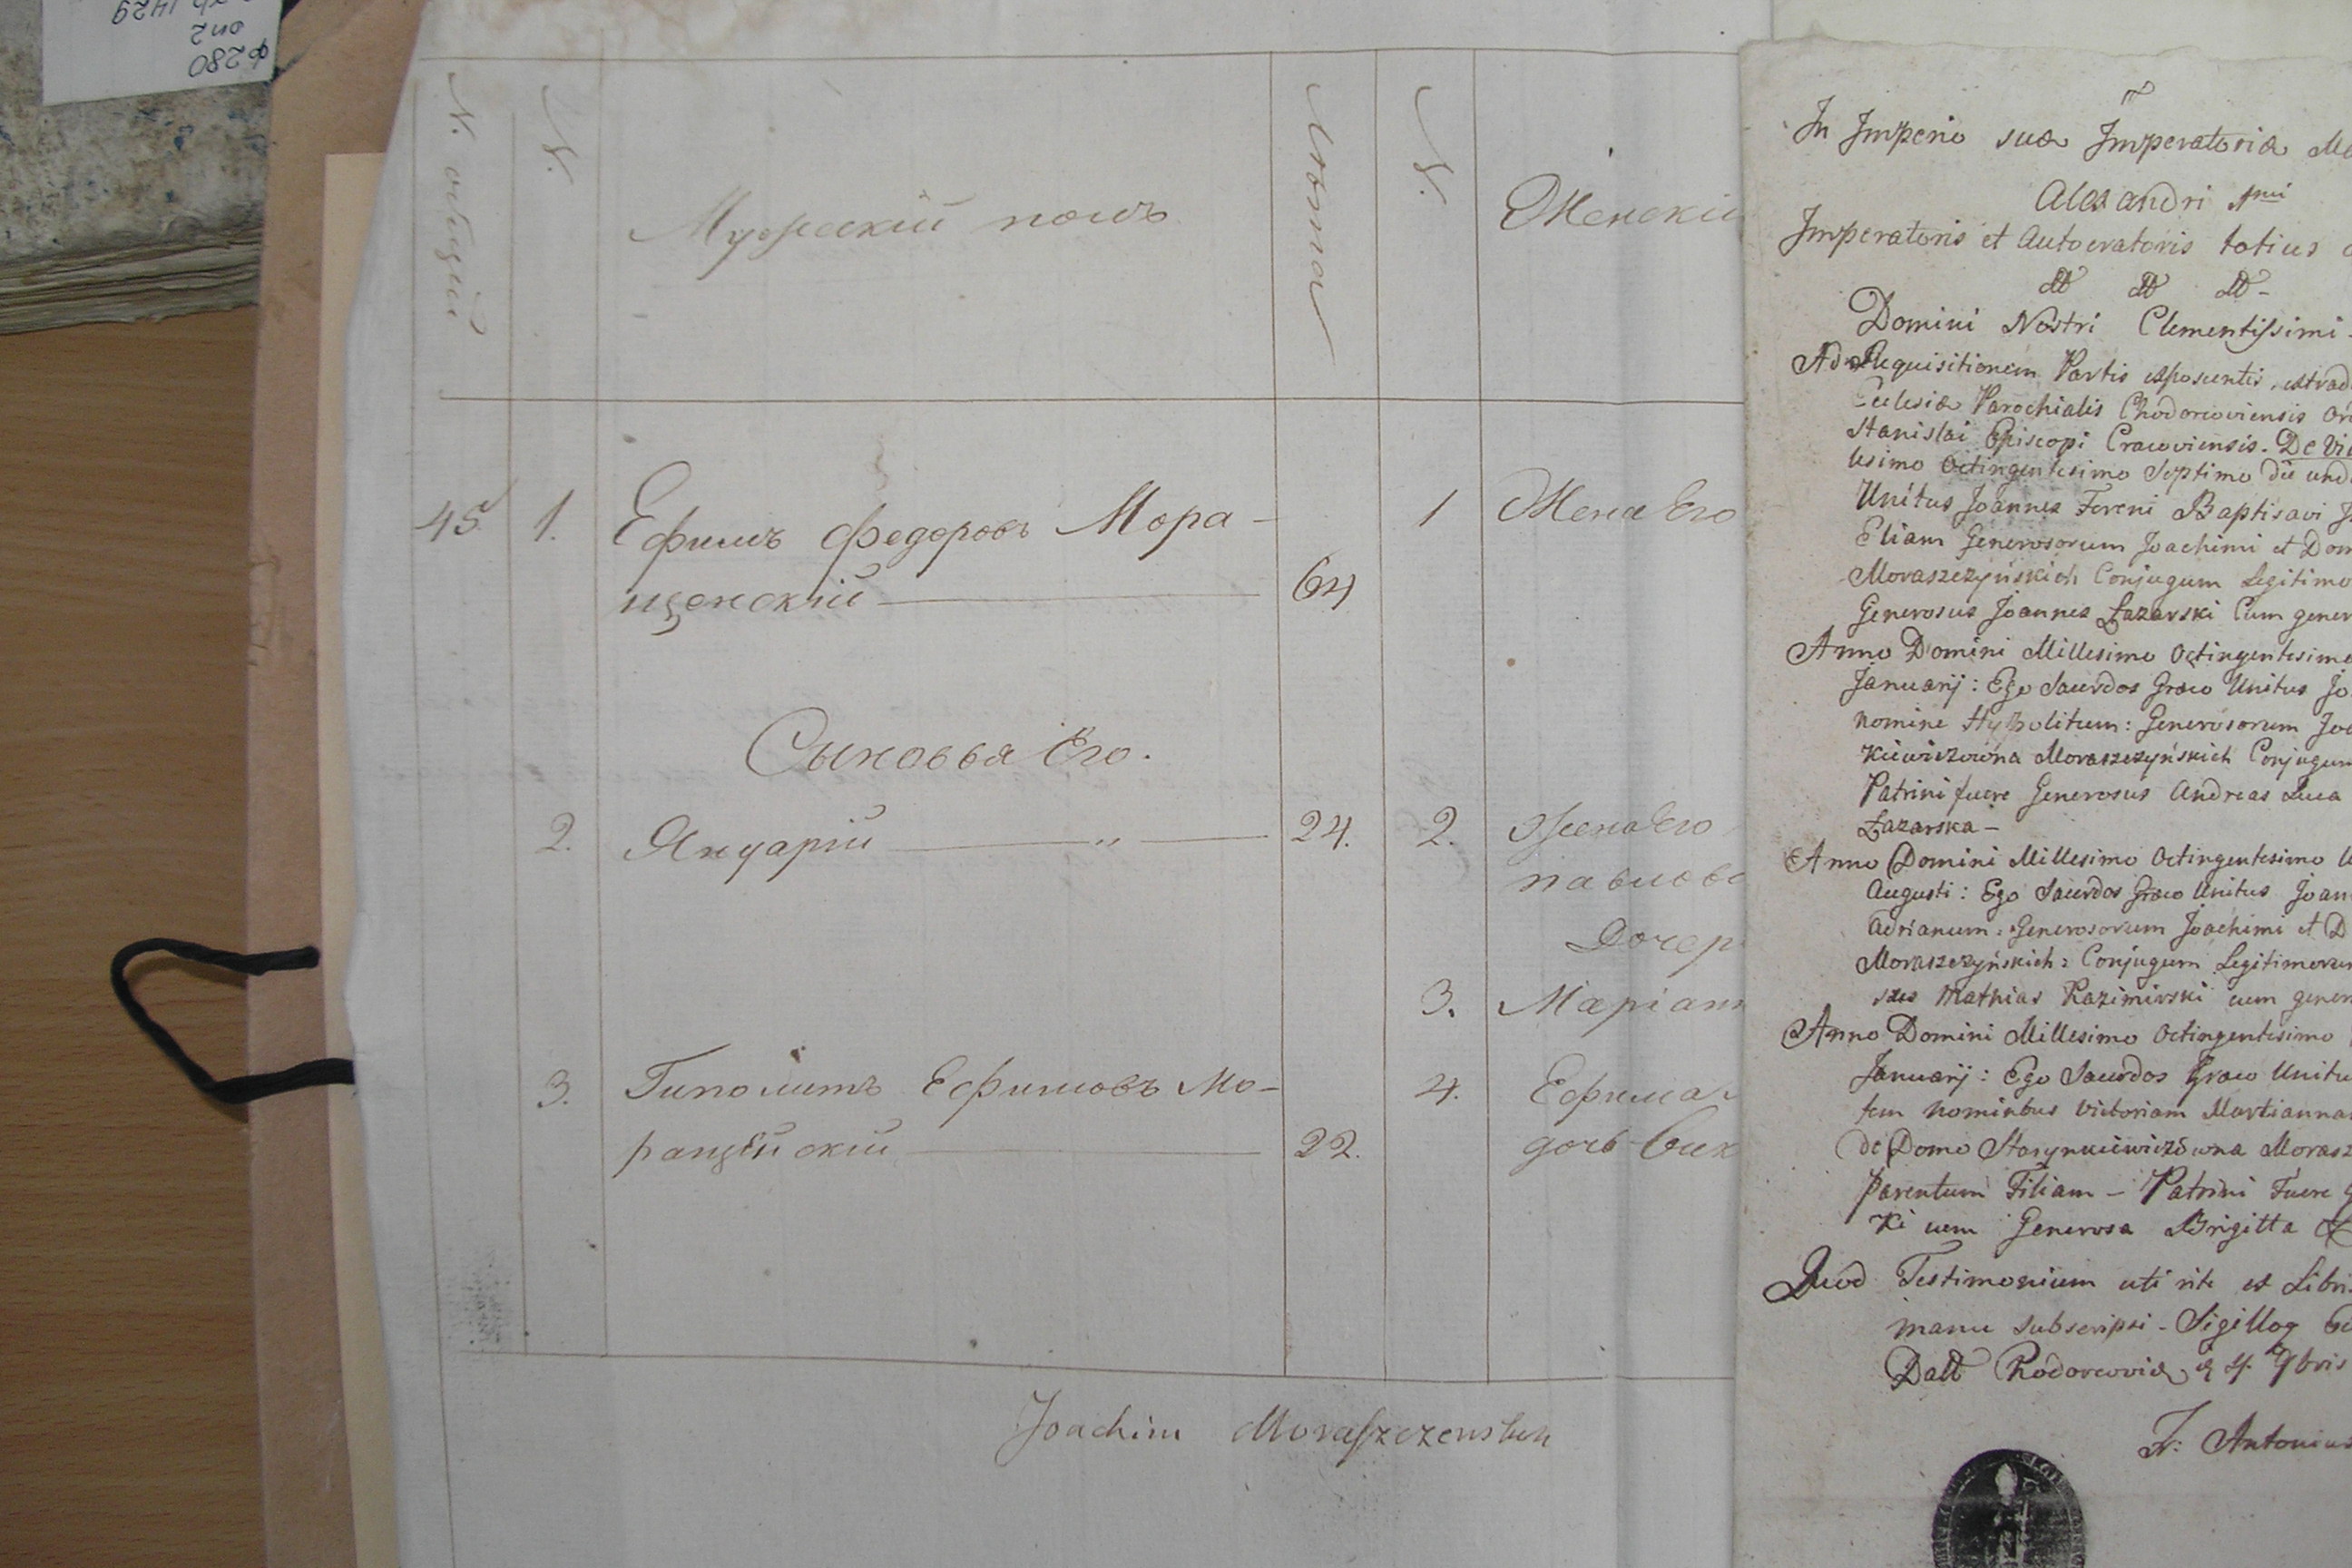 ф 280
оп 2
1429
N. общий
N.
Мужескій полъ
Лѣта
N.
Женскій
45 1. Ефимъ Федоровъ Мора-
щенскій 64
1 Жена Его
Сыновья Его.
2. Януарій " 24.
2. Жена Его
павлова
Дочер
3. Маріанн
3. Гиполитъ Ефимовъ Мо-
ращенскій 22.
4. Ефима
дочь Вик
Joachim Moraszczenski
In Imperio suæ Imperatoriæ Ma
Alexandri 1mi
Imperatoris et Autocratoris totius
Domini Nostri Clementissimi
Ad Requisitionem Partis exposcentis, extrad
Ecclesiæ Parochialis Chodorcoviensis
Stanislai Episcopi Cracoviensis. De Vi
lesimo Octingentesimo Septimo die und
Unitus Joannes Fereni Baptisavi
Eliam Generosorum Joachimi et Dom
Moraszczyńskich Conjugum Legitimo
Generosus Joannes Łazarski Cum gener
Anno Domini Millesimo Octingentesimo
Januarij: Ego Sacerdos Græco Unitus Jo
nomine Hyppolitum: Generosorum Joa
kiewiczowna Moraszczyńskich Conjugum
Patrini fuere Generosus Andreas Luca
Łazarska -
Anno Domini Millesimo Octingentesimo
Augusti: Ego Sacerdos Græco Unitus Joan
Adrianum: Generosorum Joachimi et D
Moraszczyńskich: Conjugum Legitimorum
sus Mathias Kazimirski cum gener
Anno Domini Millesimo Octingentesimo
Januarij: Ego Sacerdos Græco Unitu
tem nominbus Victoriam Martianna
de Domo Starynkiewiczówna Morasz
Parentum Filiam - Patrini Fuere G
ki cum Generosa Brigitta
Quod Testimonium uti rite ex Libri
manu Subscripsi - Sigilloq
Datt Chodorcoviæ 4 9bris
Fr: Antonius